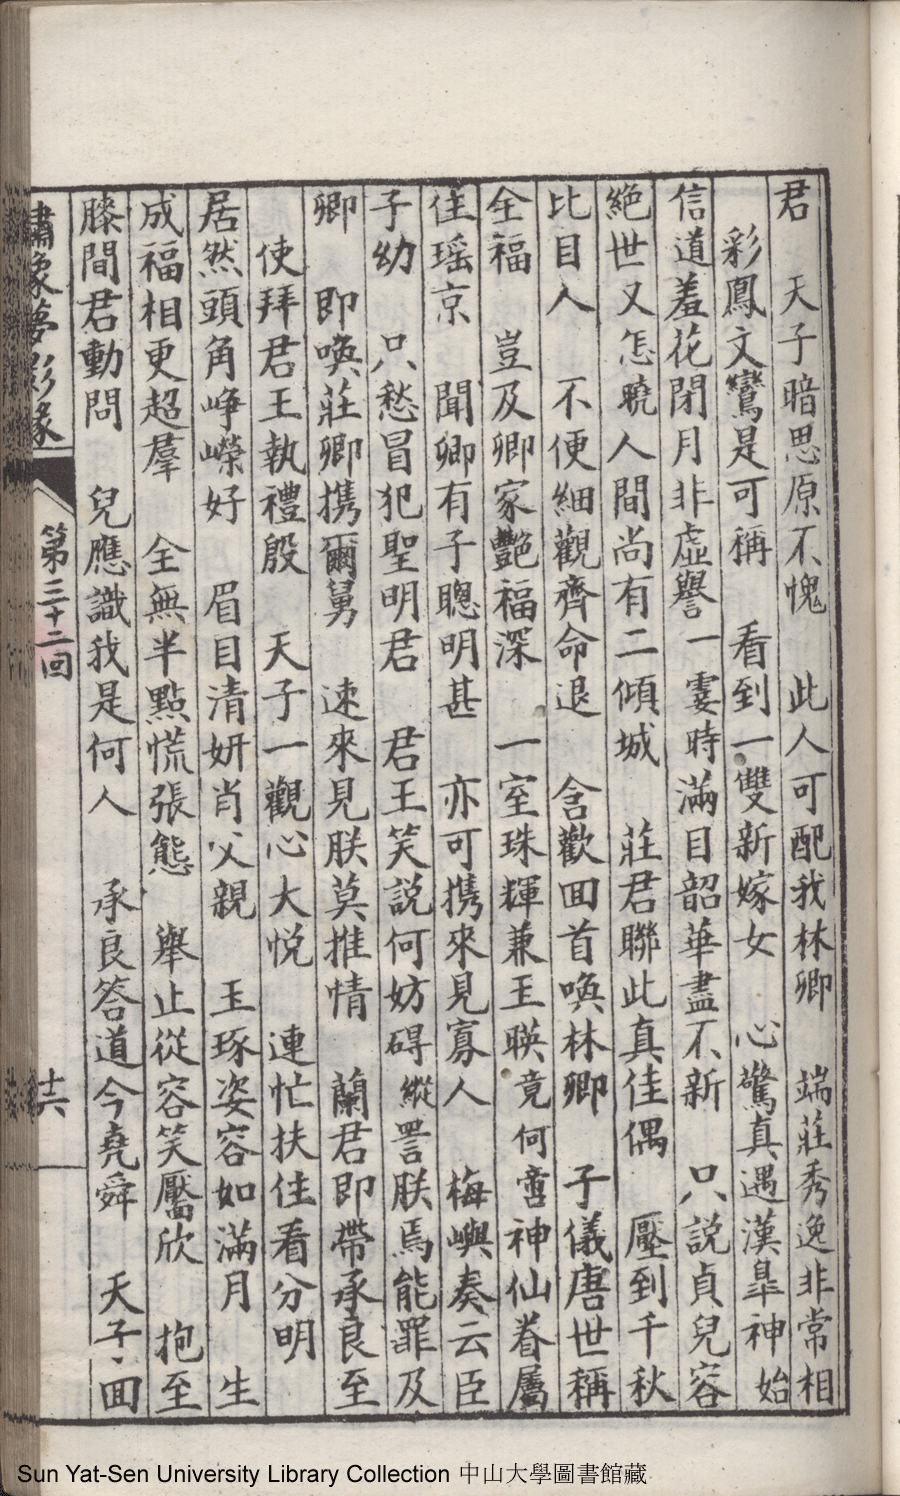 君　天子暗思原不愧　此人可配我林卿　端莊秀逸非常相
彩鳳文鸞是可稱　看到一雙新嫁女　心驚真遇漢皐神始
信道羞花閉月非虛譽一霎時滿目韶華盡不新　只説貞兒容
絕世又怎曉人間尚有二傾城　莊君聯此真佳偶　壓到千秋
比目人　不便細觀齊命退　含歡囬首喚林卿　子儀唐世稱
全福　豈及卿家艷福深　一室珠輝兼玉暎竟何啻神仙眷屬
住瑶京　聞卿有子聰明甚　亦可携來見寡人　梅嶼奏云臣
子幼　只愁冒犯聖明君　君王笑説何妨碍縱詈朕焉能罪及
卿　即喚莊卿携爾舅　速來見朕莫推情　蘭君即帶承良至
使拜君王執禮殷　天子一觀心大悦　連忙扶住看分明
居然頭角崢嶸好　眉目清妍肖父親　玉琢姿容如滿月　生
成福相更超羣　全無半點慌張態　舉止從容笑靨欣　抱至
膝間君動問　兒應識我是何人　承良答道今堯舜　天子囬
繡像夢影緣
第三十二回
十六
Sun Yat-Sen University Library Collection 中山大學圖書館藏